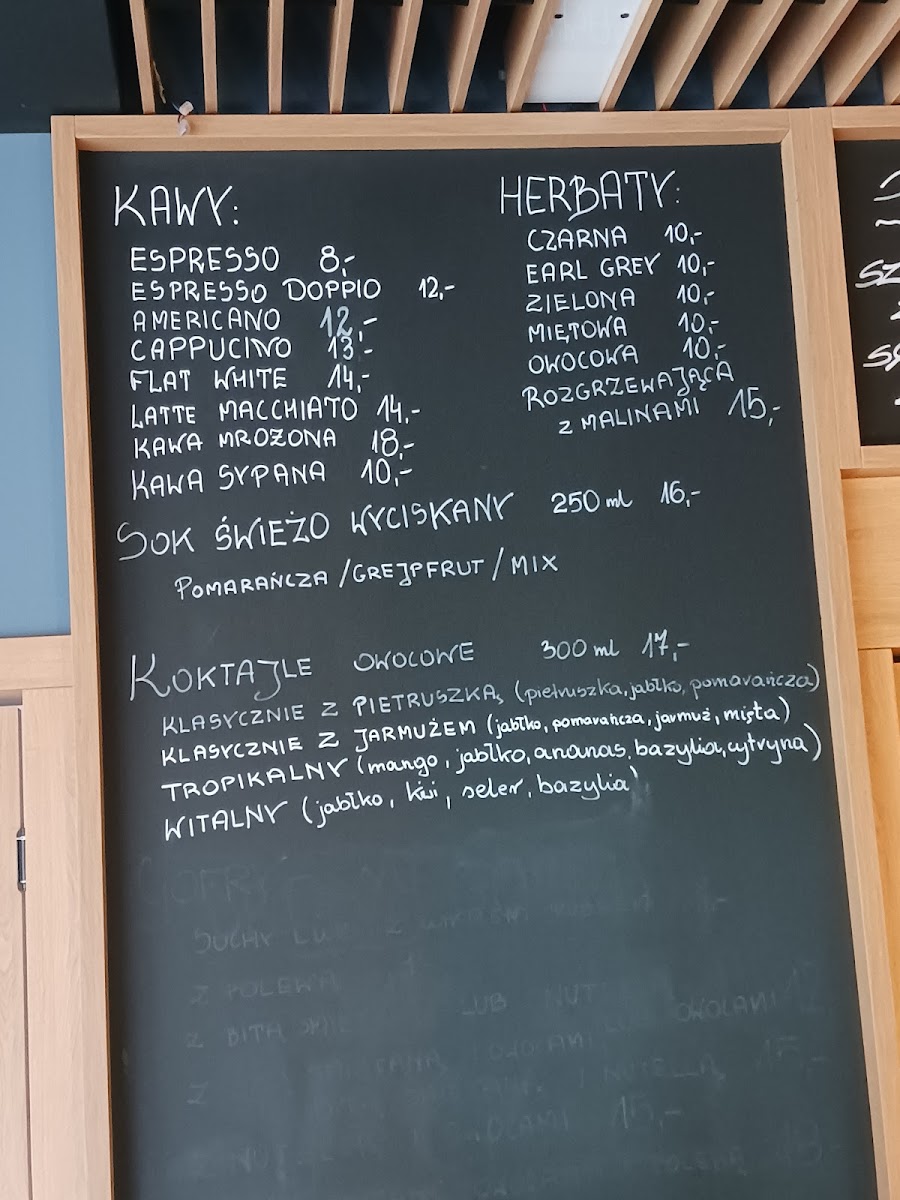 KAWY:
ESPRESSO 8,-
ESPRESSO DOPPIO 12,-
AMERICANO 12,-
CAPPUCINO 13,-
FLAT WHITE 14,-
LATTE MACCHIATO 14,-
KAWA MROŻONA 18,-
KAWA SYPANA 10,-
HERBATY:
CZARNA 10,-
EARL GREY 10,-
ZIELONA 10,-
MIĘTOWA 10,-
OWOCOWA 10,-
ROZGRZEWAJĄCA
Z MALINAMI 15,-
SOK ŚWIEŻO WYCISKANY 250 ml 16,-
POMARAŃCZA / GREJPFRUT / MIX
KOKTAJLE OWOCOWE 300 ml 17,-
KLASYCZNIE Z PIETRUSZKĄ (pietruszka, jabłko, pomarańcza)
KLASYCZNIE Z JARMUŻEM (jabłko, pomarańcza, jarmuż, mięta)
TROPIKALNY (mango, jabłko, ananas, bazylia, cytryna)
WITALNY (jabłko, kiwi, seler, bazylia)
GOFRY
SUCHY LUB Z
Z POLEWĄ
Z BITĄ LUB OWOCAMI
OWOCAMI
NUTELLĄ
15,-
SZ